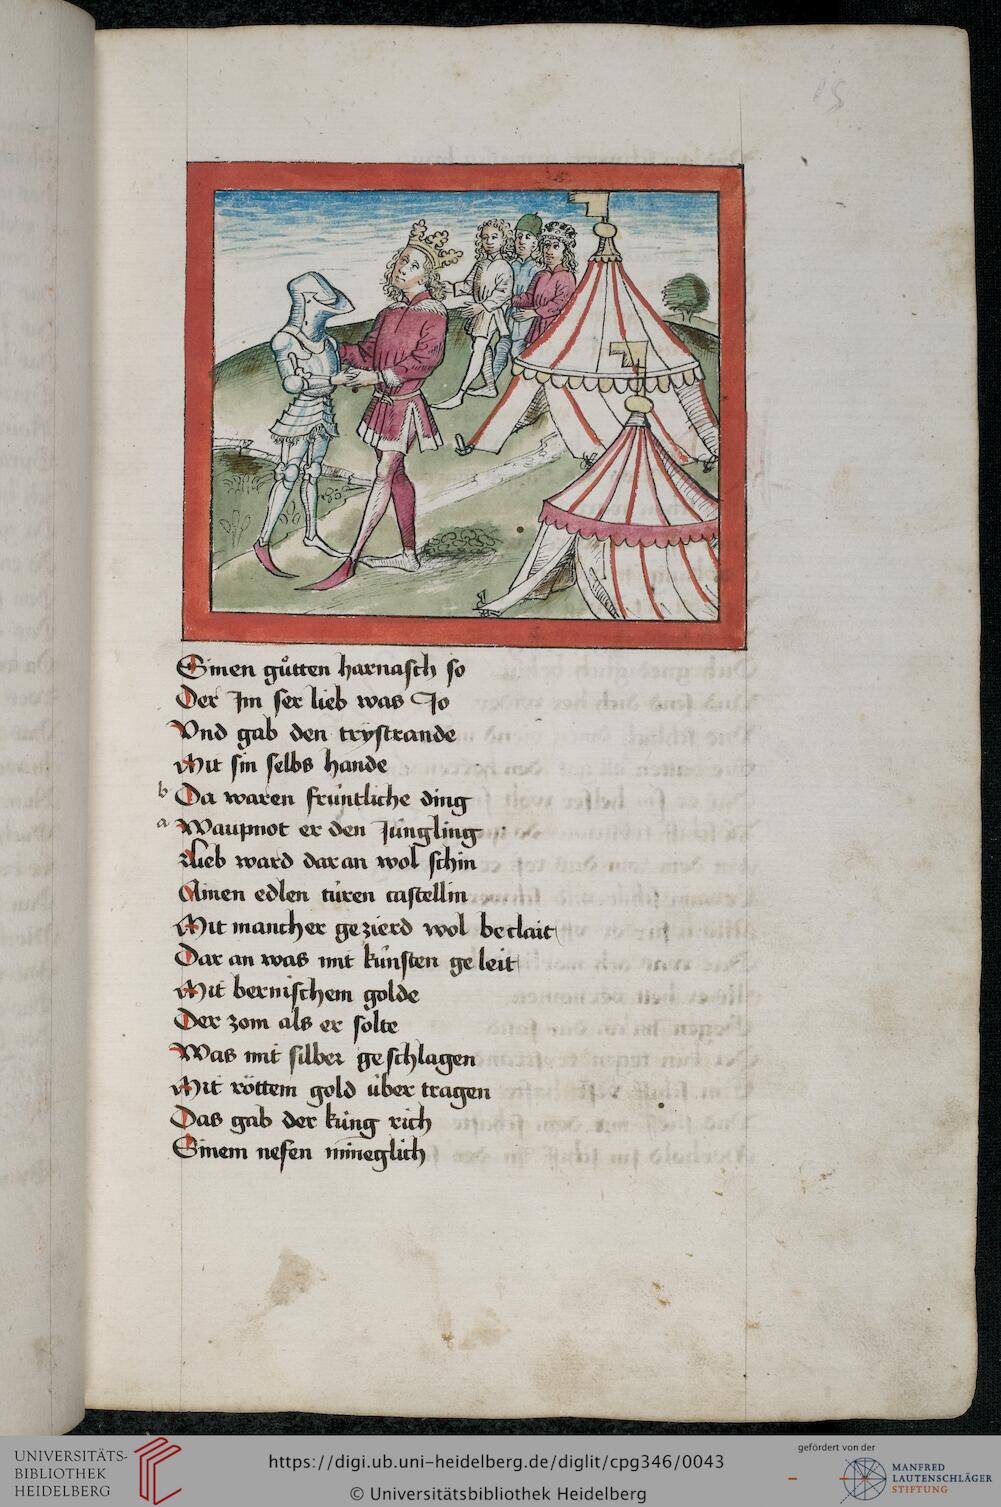 15
Sinen gůtten harnasch so
Der Im ser lieb was Jo
Vnd gab den trÿstrande
Mit sin selbs hande
b Da waren früntliche ding
a Waupnot er den Jüngling
Lieb ward dar an wol schin
Ainen edlen türen castellin
Mit mancher gezierd wol beclait
Dar an was mit künsten geleit
Mit bernischem golde
Der zom als er solte
Was mit silber geschlagen
Mit röttem gold über tragen
Das gab der küng rich
Sinem nefen mineglich
UNIVERSITÄTS-
BIBLIOTHEK
HEIDELBERG
https://digi.ub.uni-heidelberg.de/diglit/cpg346/0043
© Universitätsbibliothek Heidelberg
gefördert von der
MANFRED
LAUTENSCHLÄGER
STIFTUNG